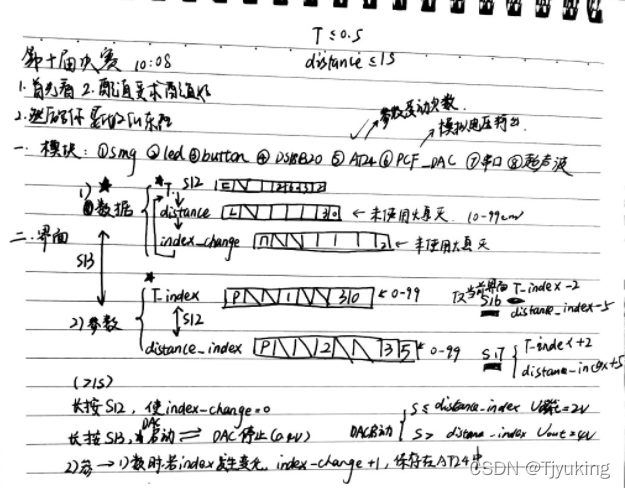 T≤0.5
distance≤1S
第十届决赛 10:08
1.首先看2.配置要求配置好
一、模块: ①smg ②led ③button ④DS18B20 ⑤AT24 ⑥PCF_DAC ⑦串口 ⑧超声波
参数变动次数.
模拟电压输出
1)数据
T. S12
distance ←未使用熄灭. 10-99cm
index_change ←未使用熄灭
二.界面
S13
T-index P 1 30 0-99
S12
2)参数
distance_index P 2 35 0-99
仅当前界面 T-index-2
S16 distance_index-5
S17 T-index+2
distance-index+5
(>1S)
长按S12, 使index-change=0
长按S13, DAC启动 ⇌ DAC停止
DAC启动 S≤distance-index =2V
S>distance-index Uout=4V
2)参→1)数时,若index发生变化. index-change+1, 保存在AT24中
CSDN @Tjyuking